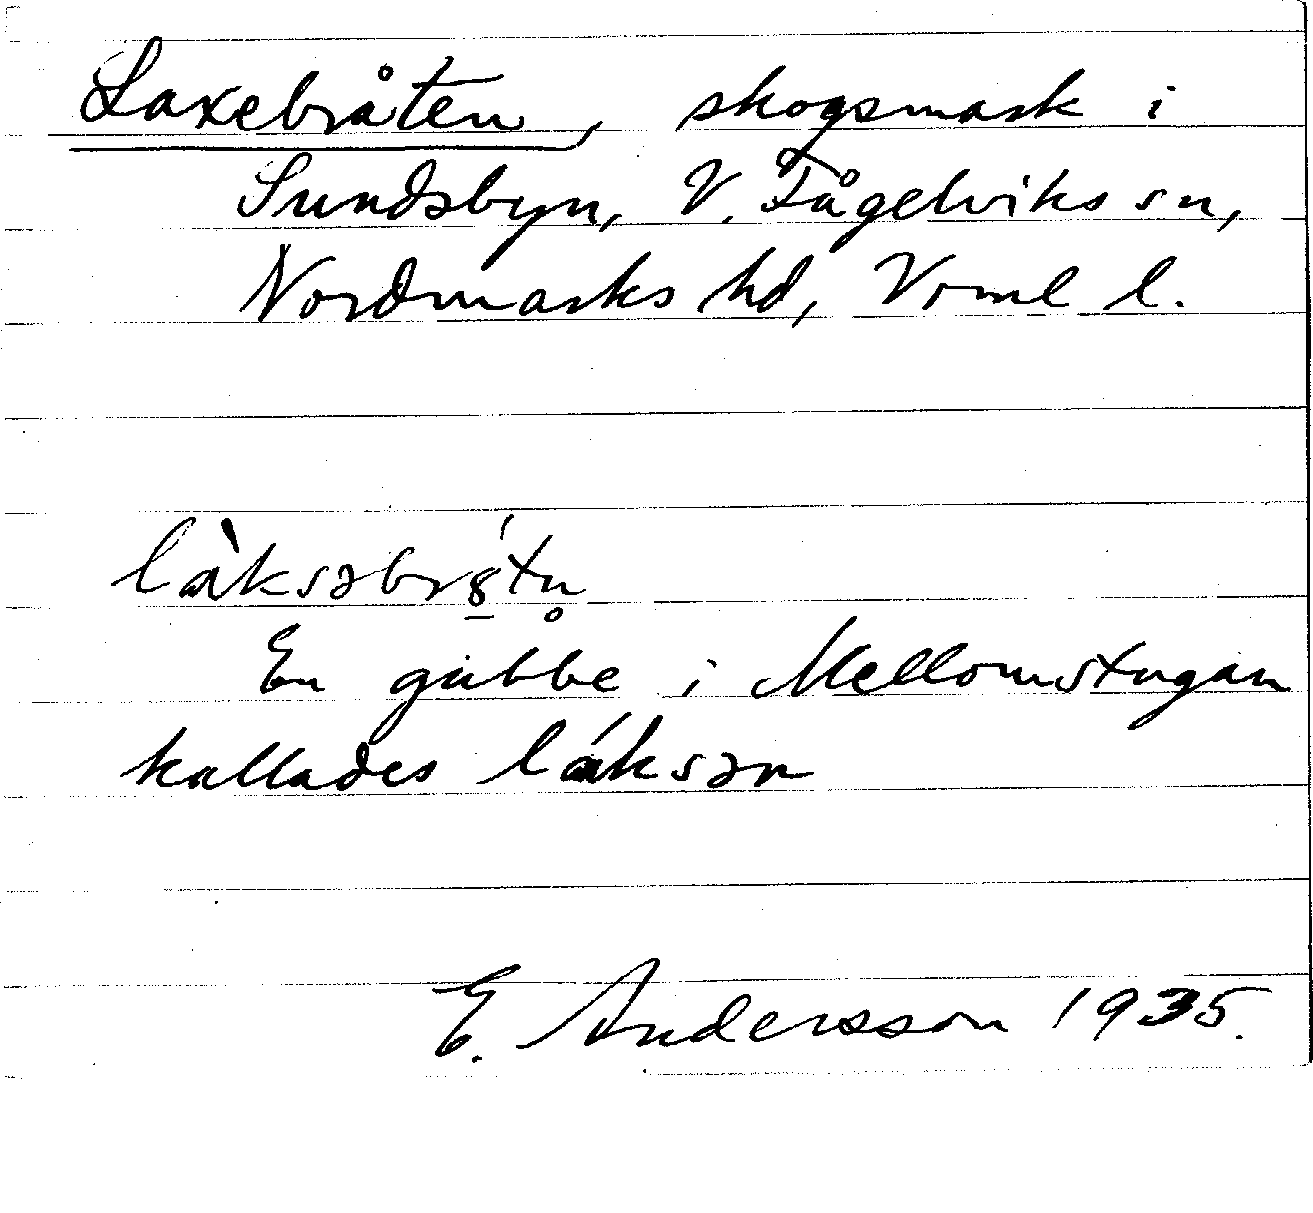 Laxebråten, skogsmark i
Sundsbyn, V. Fågelviks sn,
Nordmarks hd, Vrml l.
làksəbr8̲́tn̥
En gubbe i Mellomstugan
kallades láksən
E. Andersson 1935.